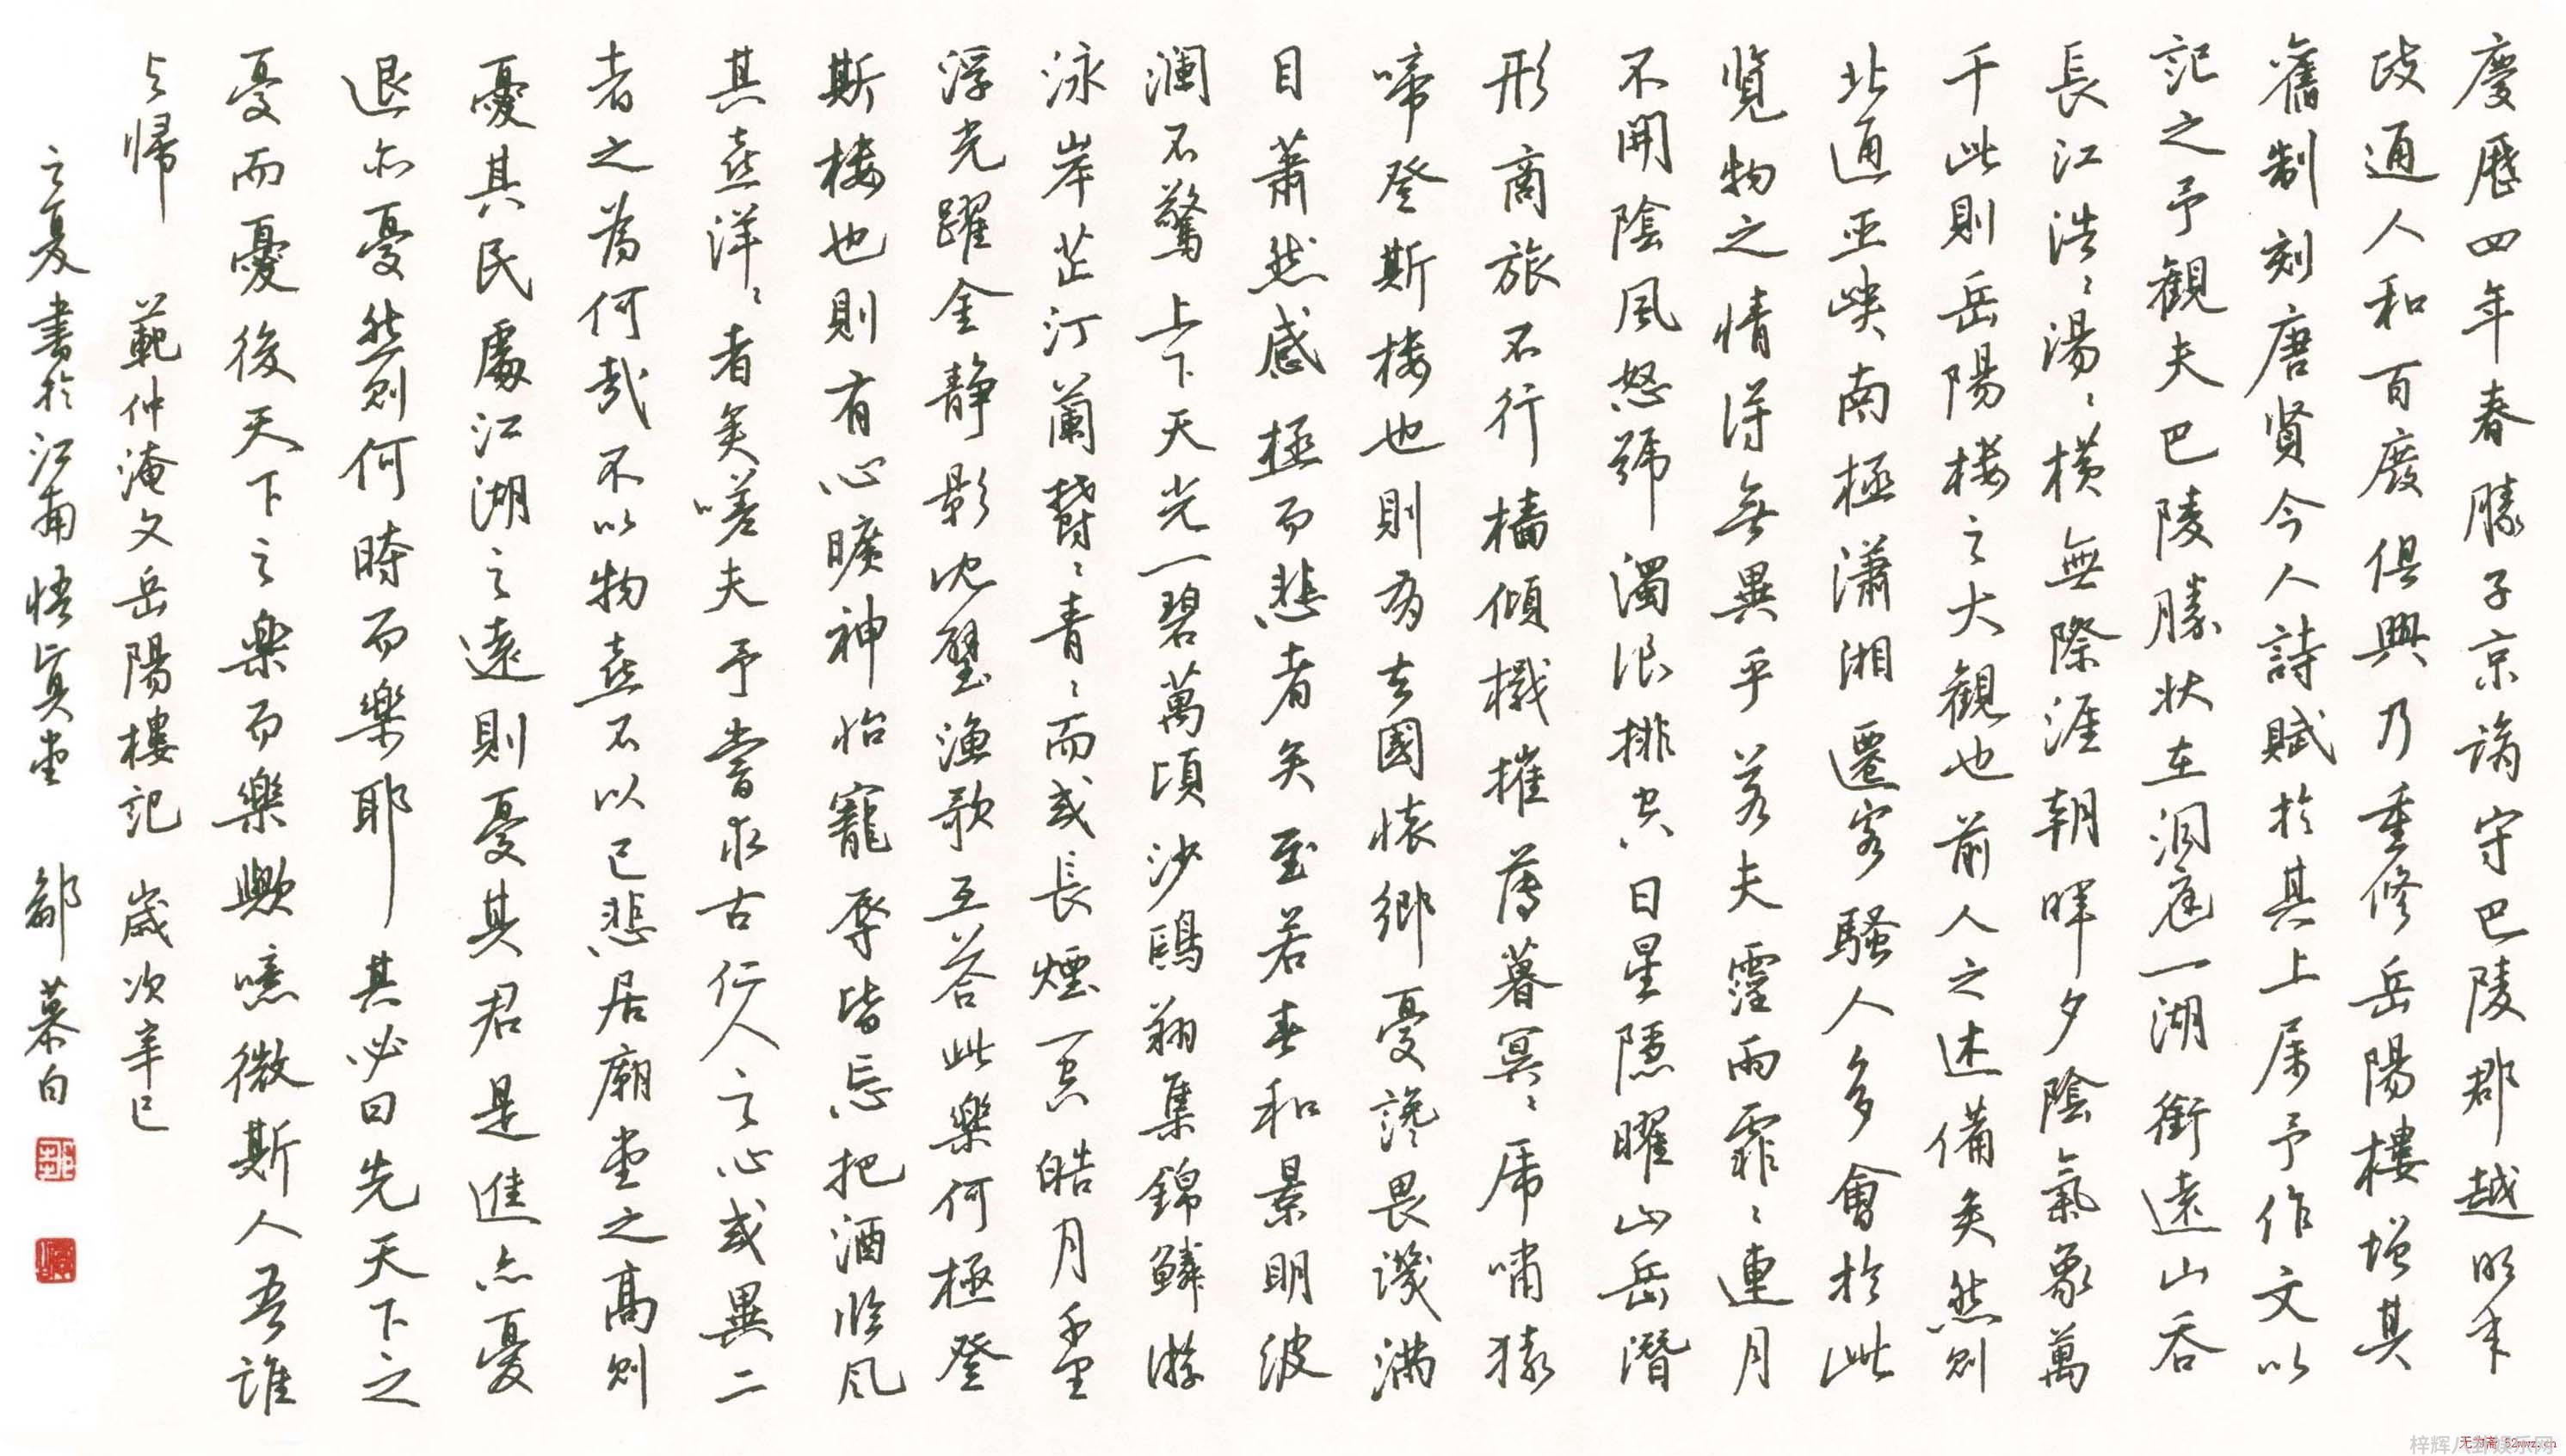 慶歷四年春滕子京謫守巴陵郡越明年
政通人和百廢俱興乃重修岳陽樓增其
舊制刻唐賢今人詩賦於其上屬予作文以
記之予觀夫巴陵勝狀在洞庭一湖銜遠山吞
長江浩〻湯〻橫無際涯朝暉夕陰氣象萬
千此則岳陽楼之大觀也前人之述備矣然則
北通巫峽南極瀟湘遷客騷人多會於此
覽物之情得無異乎若夫霪雨霏〻連月
不開陰風怒號濁浪排空日星隱曜山岳潛
形商旅不行檣傾檝摧薄暮冥〻虎嘯猿
啼登斯楼也則有去國懷鄉憂讒畏譏滿
目蕭然感極而悲者矣至若春和景明波
瀾不驚上下天光一碧萬頃沙鷗翔集錦鱗游
泳岸芷汀蘭鬱〻青〻而或長煙一空皓月千里
浮光躍金靜影沈璧漁歌互答此樂何極登
斯楼也則有心曠神怡寵辱皆忘把酒臨風
其喜洋〻者矣嗟夫予嘗求古仁人之心或異二
者之為何哉不以物喜不以己悲居廟堂之高則
憂其民處江湖之遠則憂其君是進亦憂
退亦憂然則何時而樂耶其必曰先天下之
憂而憂後天下之樂而樂歟噫微斯人吾誰
与歸 範仲淹文岳陽樓記 歲次辛巳
之夏書於江南悟真堂 鄒慕白
梓辉八卦娱乐网
无为斋 52wwz.cn